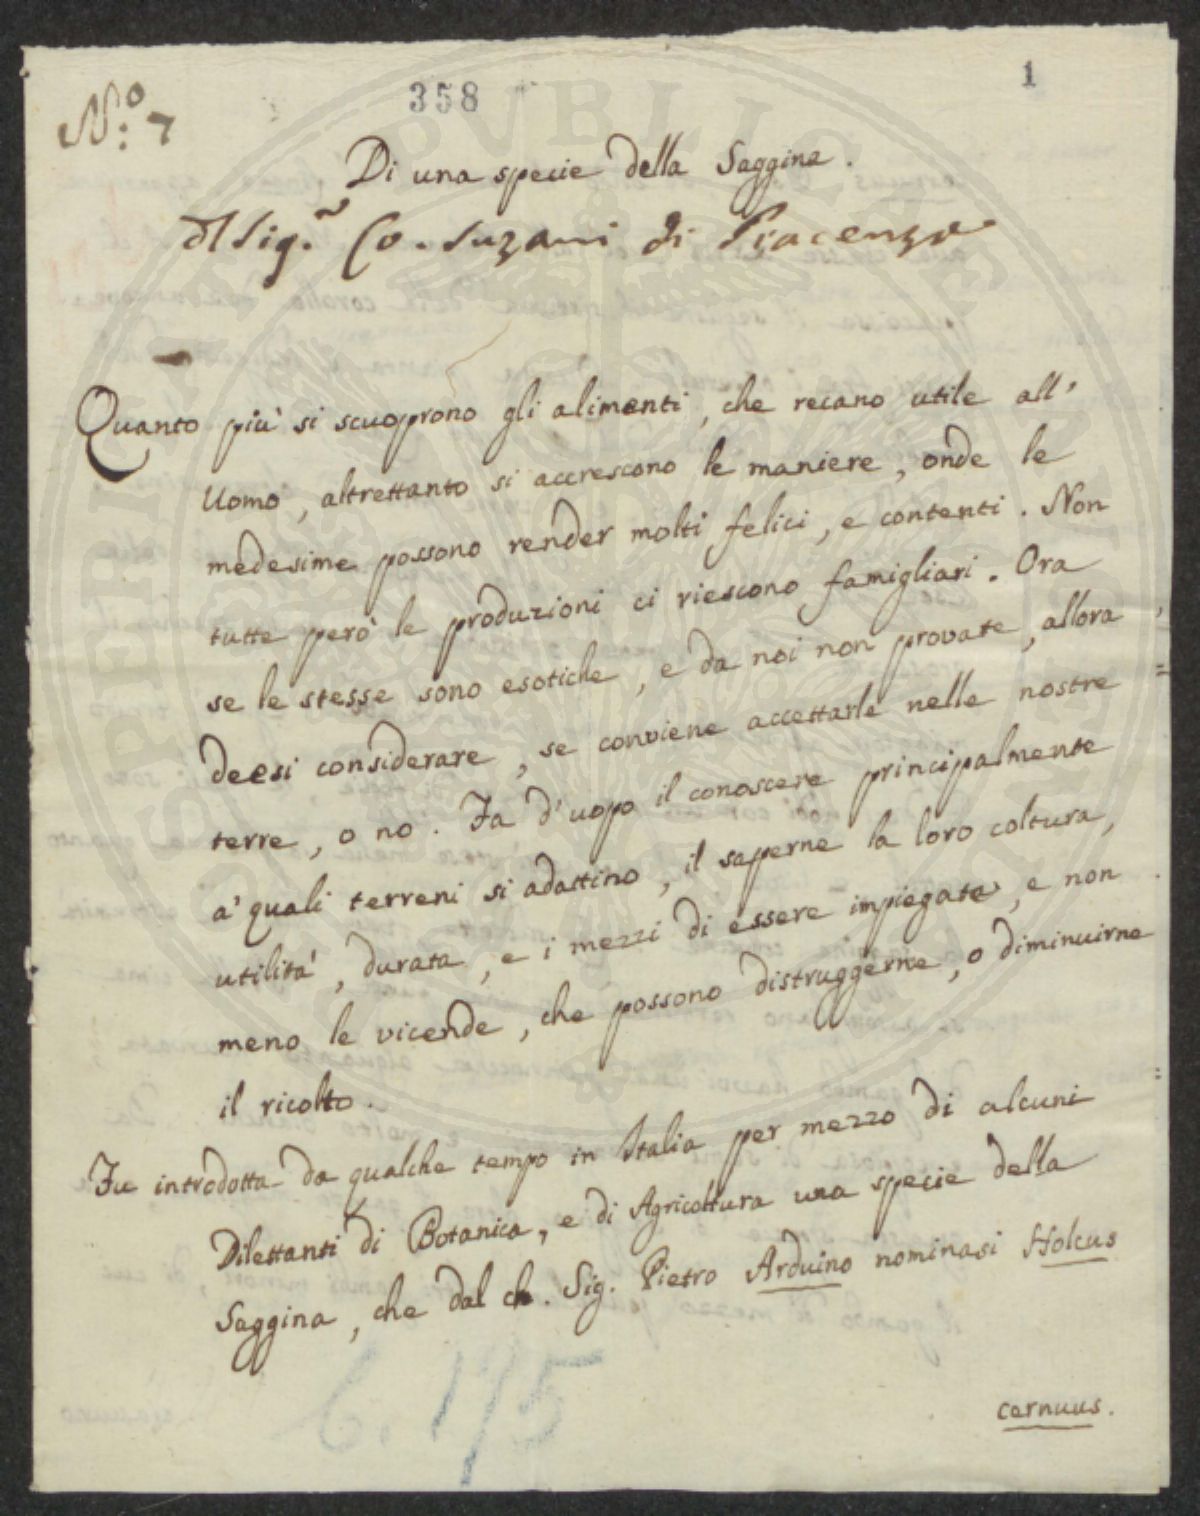 N.º 7
358
1
Di una specie della Saggina.
Del Sig.r Co. Suzani di Piacenza
Quanto più si scuoprono gli alimenti, che recano utile all'
Uomo, altrettanto si accrescono le maniere, onde le
medesime possono render molti felici, e contenti. Non
tutte però le produzioni ci riescono famigliari. Ora
se le stesse sono esotiche, e da noi non provate, allora
deesi considerare, se conviene accettarle nelle nostre
terre, o no. Fa d'uopo il conoscere principalmente
a' quali terreni si adattino, il saperne la loro coltura,
utilità, durata, e i mezzi di essere impiegate, e non
meno le vicende, che possono distruggerne, o diminuirne
il ricolto.
Fu introdotta da qualche tempo in Italia per mezzo di alcuni
Dilettanti di Botanica, e di Agricoltura una specie della
Saggina, che dal ch. Sig. Pietro Arduino nominasi Holcus
cernuus.
6. 175